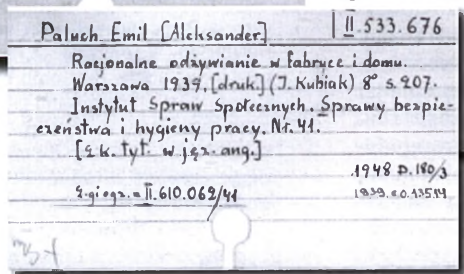 Paluch Emil [Aleksander] II.533.676
Racjonalne odżywianie w fabryce i domu.
Warszawa 1939, [druk] (J. Kubiak) 8° s. 207.
Instytut Spraw Społecznych. Sprawy bezpie-
czeństwa i hygieny pracy. Nr. 41.
[2 k. tyt. w jęz. ang.]
1948 D. 180/3
2-gi egz. = II.610.062/41
1939.c.0.